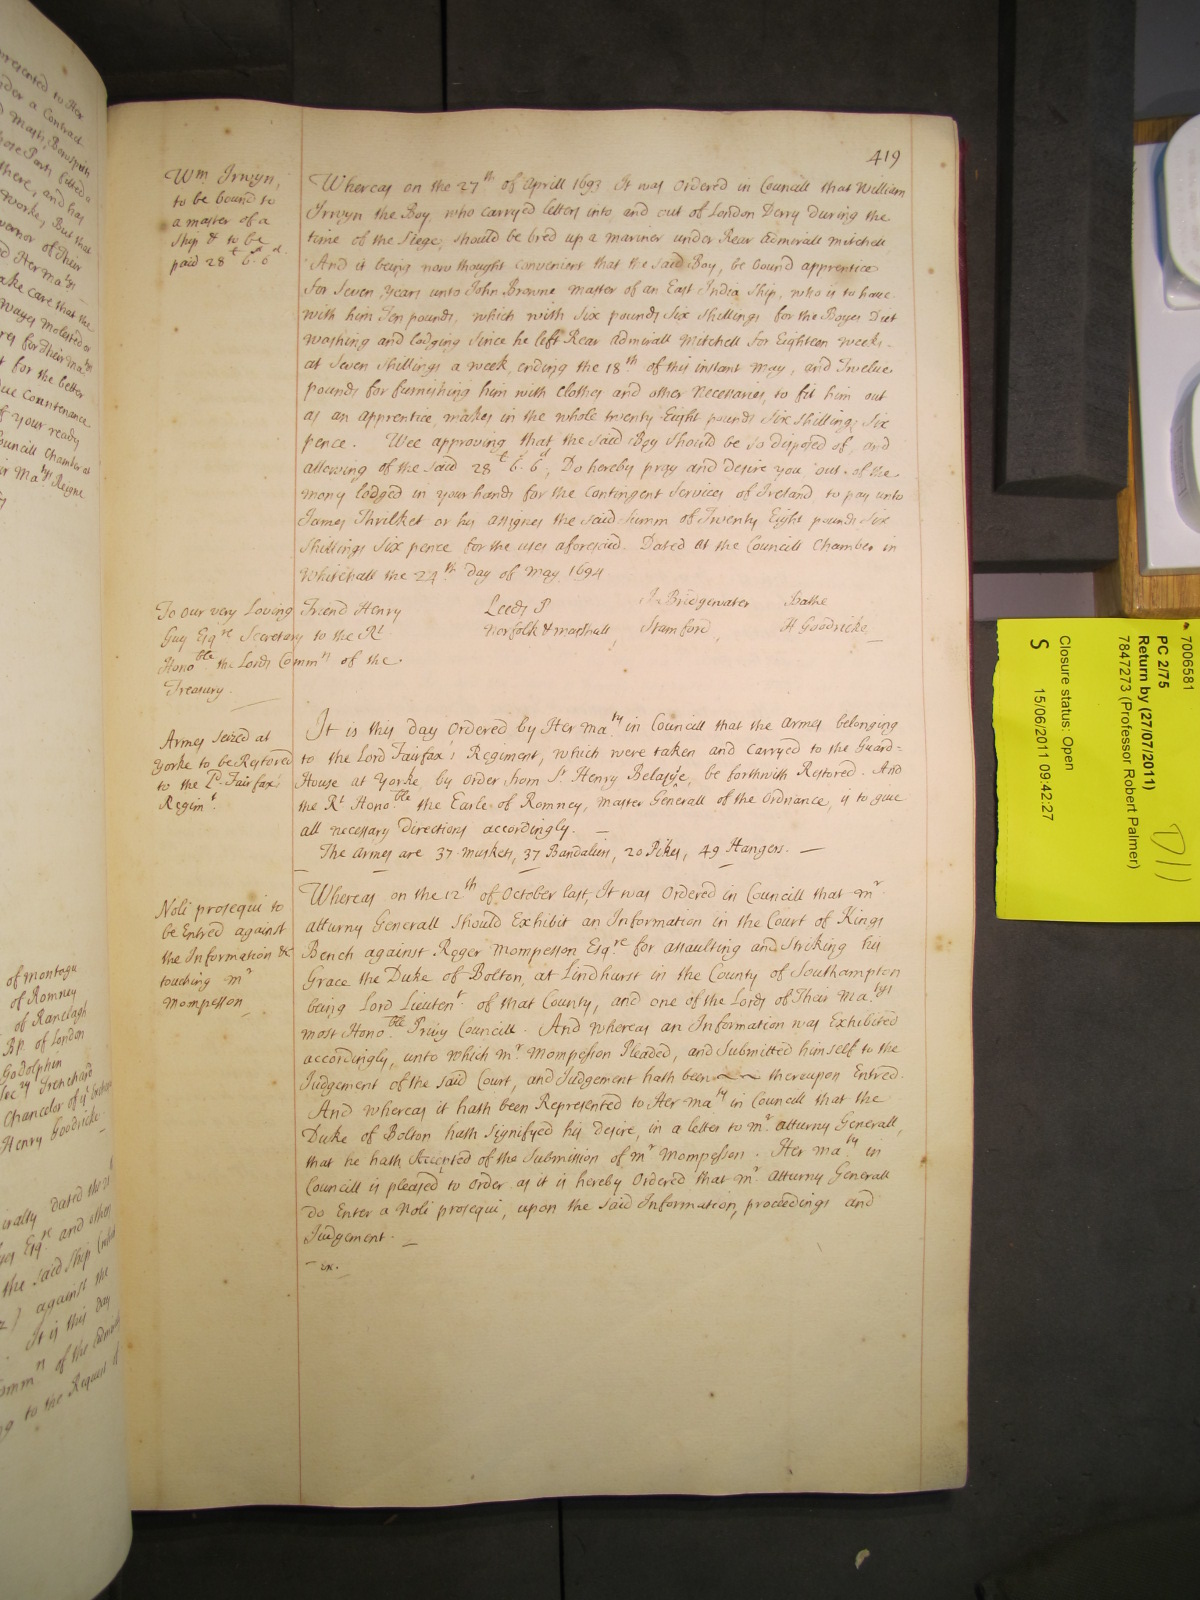 419
Wm Irwyn,
to be bound to
a master of a
Ship & to be
paid 28£ 6s. 6d.
Whereas on the 27th of Aprill 1693 It was Ordered in Councill that William
Irwyn the Boy, who carryed letters into and out of London Derry during the
time of the Siege, should be bred up a mariner under Rear Admirall Mitchell
And it being now thought convenient that the said Boy, be bound apprentice
for Seven years unto John Browne master of an East India Ship, who is to have
with him Ten pounds, which with Six pounds Six Shillings for the Boyes Diet
washing and lodging Since he left Rear Admirall Mitchell for Eighteen weeks
at Seven Shillings a week, ending the 18th of this instant May, and Twelve
pounds for furnishing him with clothes and other Necessaries, to fit him out
as an apprentice, makes in the whole twenty Eight pounds Six Shillings Six
pence. Wee approving that the said Boy should be so disposed of, and
allowing of the said 28£ 6. 6d, Do hereby pray and desire you out of the
mony lodged in your hands for the Contingent Services of Ireland to pay unto
James Thrilket or his assignes the said Summ of Twenty Eight pounds Six
Shillings Six pence for the uses aforesaid. Dated at the Councill Chamber in
Whitehall the 24th day of May 1694
To our very Loving Friend Henry
Guy Esqre Secretary to the Rt
Honoble the Lords Commrs of the
Treasury.
Leeds P
Norfolk & marshall,
J. Bridgewater
Stamford,
Bathe
H Goodricke
Armes seized at
Yorke to be Restored
to the Ld Fairfax
Regimt.
It is this day Ordered by Her Maty in Councill that the Armes belonging
to the Lord Fairfax's Regiment, which were taken and carryed to the Guard=
House at Yorke by order from Sr Henry Belasyse, be forthwith Restored. And
the Rt Honoble the Earle of Romney, Master Generall of the Ordnance, is to give
all necessary Directions accordingly.
The Armes are 37 Muskets, 37 Bandaliers, 20 Pikes, 49 Hangers.
Noli prosequi to
be Entred against
the Information &c
touching Mr
Mompesson
Whereas on the 12th of October last, It was Ordered in Councill that Mr
Atturny Generall Should Exhibit an Information in the Court of Kings
Bench against Roger Mompesson Esqre for assaulting and Striking his
Grace the Duke of Bolton, at Lindhurst in the County of Southampton
being Lord Lieutent of that County, and one of the Lords of Their Matys
most Honoble Privy Councill. And whereas an Information was Exhibited
accordingly, unto which Mr Mompesson Pleaded, and Submitted himself to the
Judgement of the said Court, and Judgement hath been thereupon Entred.
And whereas it hath been Represented to Her Maty in Councill that the
Duke of Bolton hath Signifyed his desire, in a letter to Mr Atturny Generall,
that he hath Accepted of the Submission of Mr Mompesson. Her Maty in
Councill is pleased to Order as it is hereby Ordered that Mr Atturny Generall
do Enter a Noli prosequi, upon the said Information, proceedings and
Judgement.
7006581
PC 2/75
Return by (27/07/2011)
7847273 (Professor Robert Palmer)
Closure status: Open
15/06/2011 09:42:27
S
D11
of Montagu
of Romney
of Ranelagh
Bp. of London
Godolphin
Trenchard
Henry Goodricke